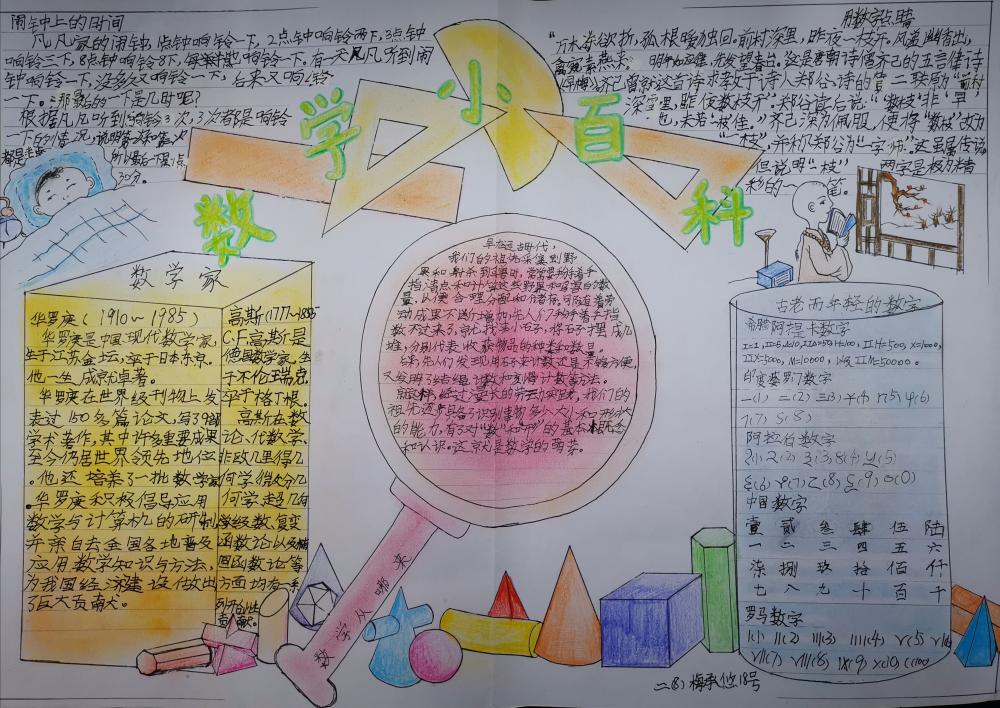 闹钟上的时间
凡凡家的闹钟,1点钟响铃一下,2点钟响铃两下,3点钟
响铃三下,8点钟响铃8下,每半
有一天凡凡听到闹
钟响铃一下,没多久响铃一下,后来又响铃
一下。
的一下是几时呢?
根据凡凡听到的铃3次,3次都是响铃
一下的情况,说明
都是半点
所以最后一下是1点
30分。
用数字点睛
"万木冻欲折,孤根暖独回。前村深里,昨夜一枝开。风递幽香出,
禽窥素艳来。明年
先发望春台。这是唐朝诗僧齐己的五言律诗
齐己曾
这首诗求教于诗人郑谷,诗的第二联原"前村
深雪里,昨夜数枝开"。郑谷读后说:"数枝'非'早'
也,未若一枝佳。"齐己深为佩服,便将"数枝"改为
"一枝",并称郑谷为"一字师"。这虽属传说,
但说明"一枝"两字是极为精
彩的一笔。
数学小百科
数学家
华罗庚(1910~1985)
华罗庚是中国现代数学家,
生于江苏金坛,卒于日本东京。
他一生成就卓著。
华罗庚在世界级刊物上发
表过150多篇论文,写9部
学术著作,其中许多重要成果
至今仍居世界领先地位
。他还培养了一批数学家
。华罗庚积极倡导应用
数学与计算机的研制
并亲自去全国各地普及
应用数学知识与方法,
为我国经济建设做出
了巨大贡献。
高斯(1777~1855
C.F.高斯是
德国数学家,生
于不伦瑞克,
卒于格丁根。
高斯在数
论、代数学、
非欧几里得几
何学、微分几
何学、超几何
学级数、复变
函数论以及椭
圆函数论等
方面均有一系
列开创性
贡献。
早在远古时代,
我们的祖先采集到野
果和射杀到猎物时,常常要扳着手
指清点和计算这些野果和猎物的数
量,以便合理分配和储存,可随着劳
动成果不断增加,先人们用扮手指
数不过来了,就找来小石子,将石子摆成几
堆,分别代表收获物品的种类和数量。
后来,先人们发现用石子来计数还是不够方便,
又发明了结绳计数和刻骨计数等方法。
就这样,经过漫长的劳动实践,我们的
祖先逐步具备了识别事物多少、大小和形状
的能力,有了对"数"和"形"的基本概念
和认识。这就是数学的萌芽。
数学从哪来
古老而年轻的数字
希腊阿提卡数字
印度婆罗门数字
一(1) 二(2) 三(3)
阿拉伯数字
中国数字
壹 贰 叁 肆 伍 陆
一 二 三 四 五 六
柒 捌 玖 拾 佰 仟
七 八 九 十 百 千
罗马数字
I(1) II(2) III(3) IIII(4) V(5) VI(6
VII(7) VIII(8) IX(9) X(10) C(100
二(8)
18号